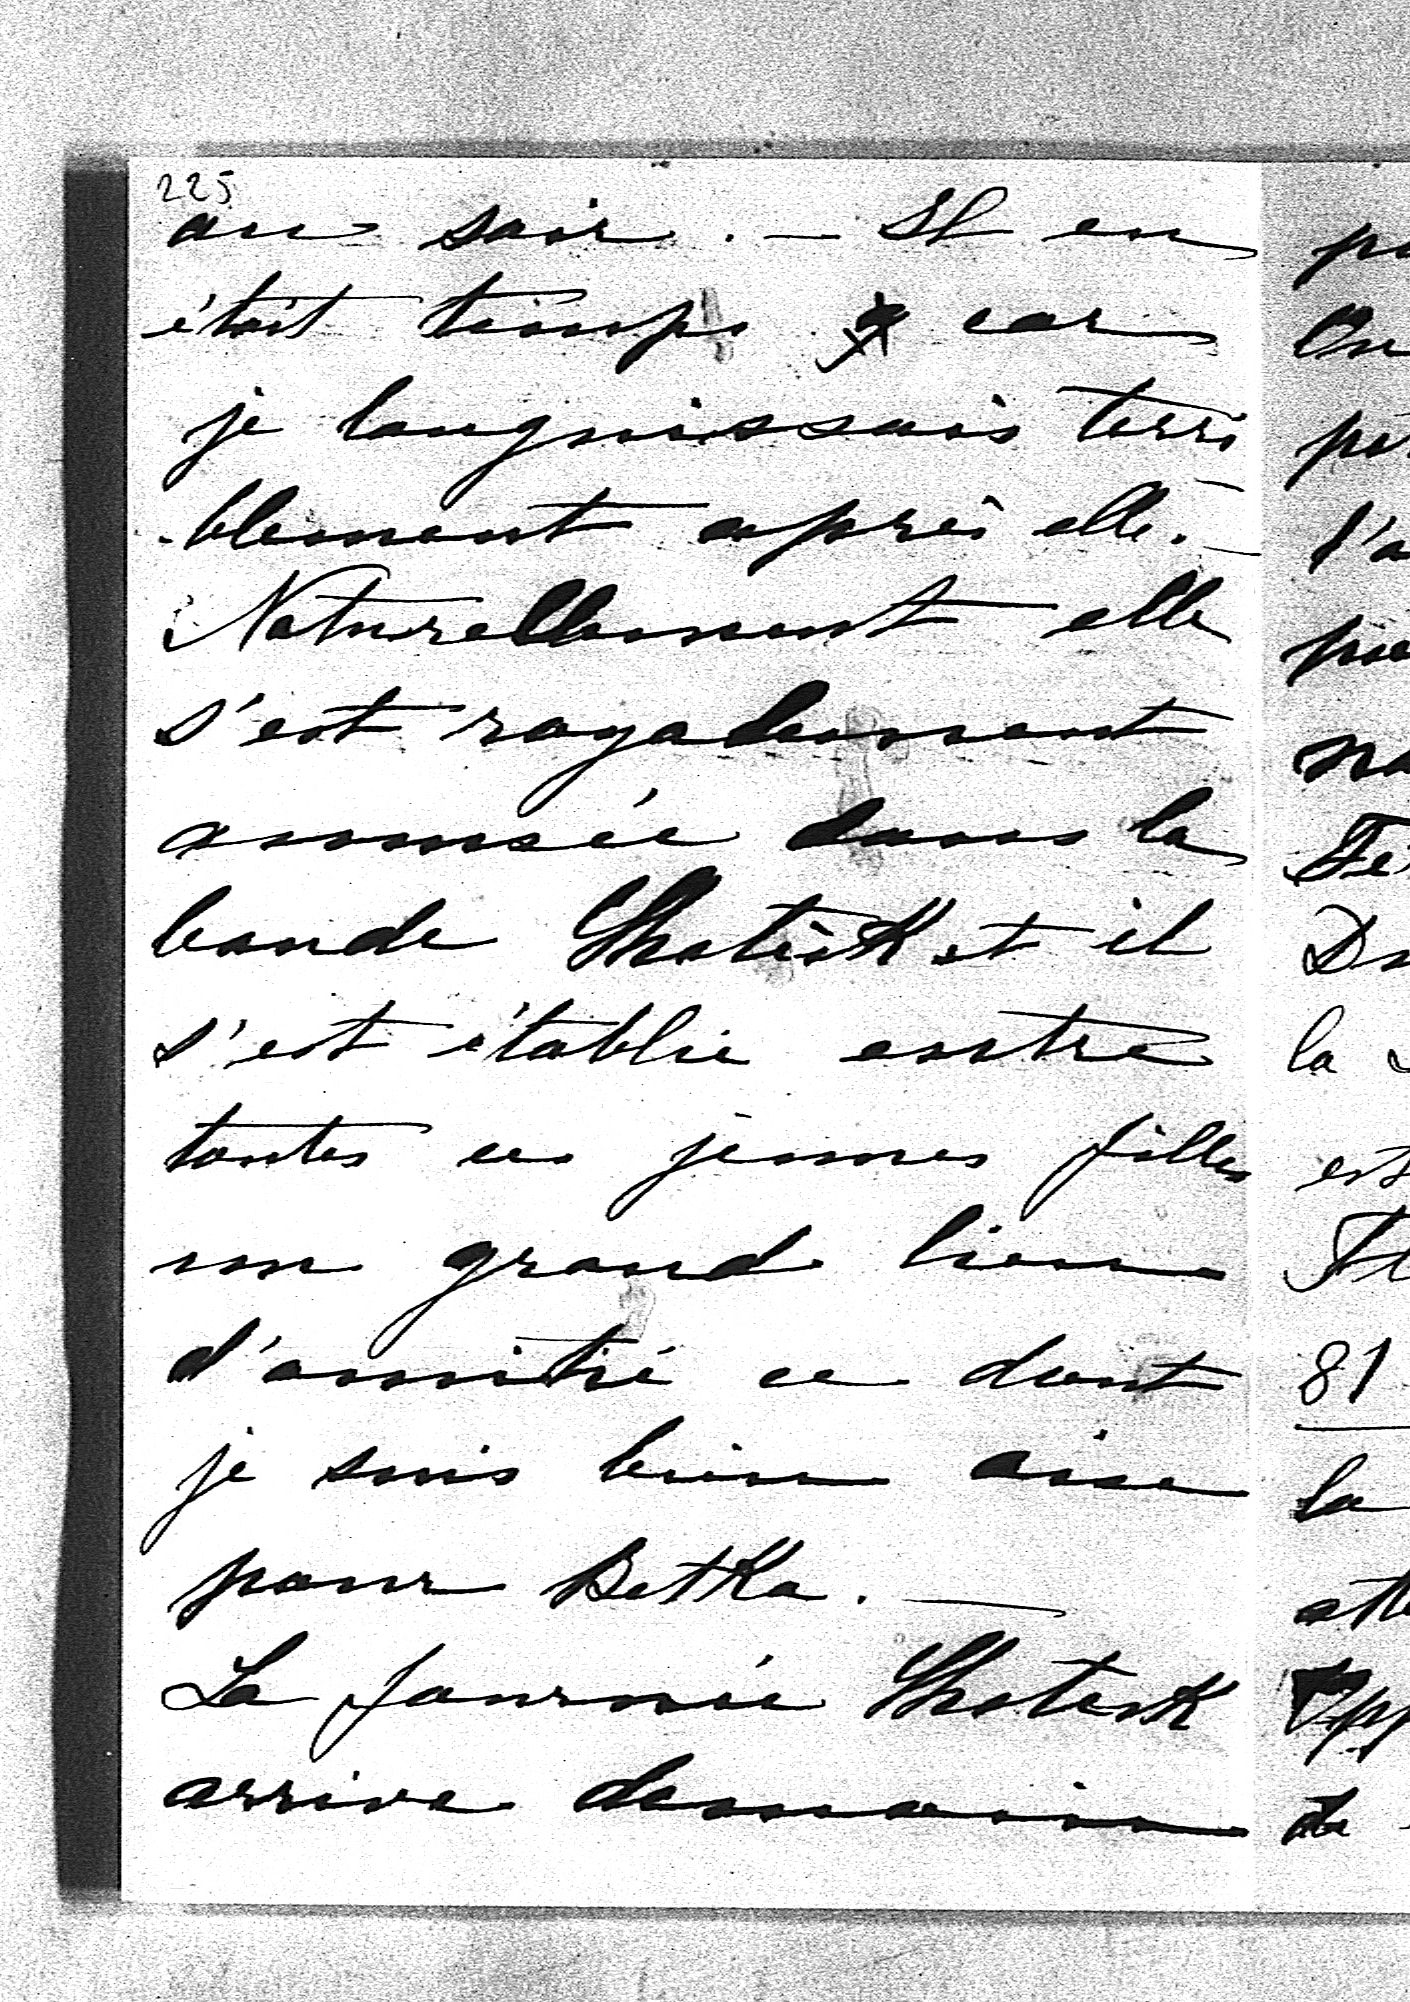 225
au soir. — Il en
était temps car
je languissais terri
blement après elle. —
Naturellement elle
s'est royalement
amusée dans la
bande Chotek et il
s'est établie entre
toutes ces jeunes filles
un grand lien
d'amitié ce dont
je suis bien aise
pour Betka. —
La fournée Chotek
arrive demain
On
l'a
la
81
la
de